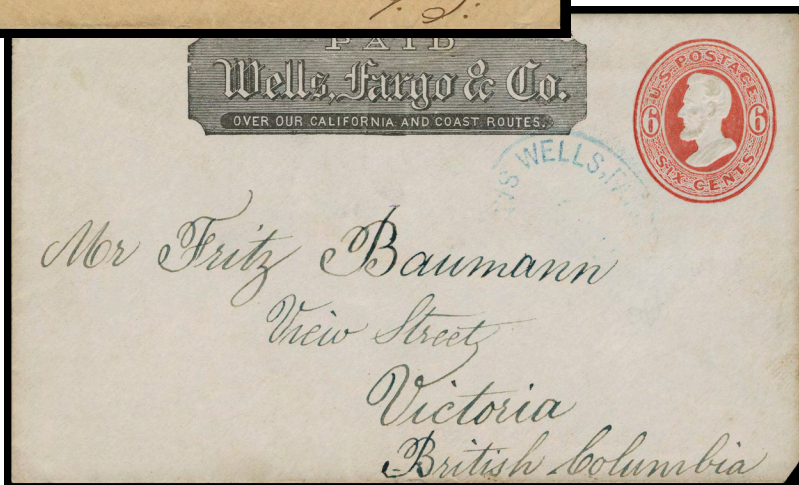 P. S.
PAID
Wells, Fargo & Co.
OVER OUR CALIFORNIA AND COAST ROUTES.
U.S. POSTAGE
6 6
SIX CENTS
WELLS, FA
Mr Fritz Baumann
View Street
Victoria
British Columbia